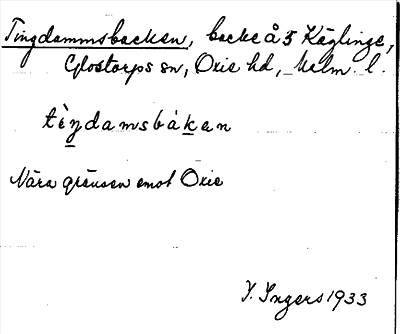 Tingdammsbacken, backe å 3 Käglinge,
Glostorps sn, Oxie hd, Malm. l.
tèŋdamsbákan
Nära gränsen emot Oxie
I. Ingers 1933